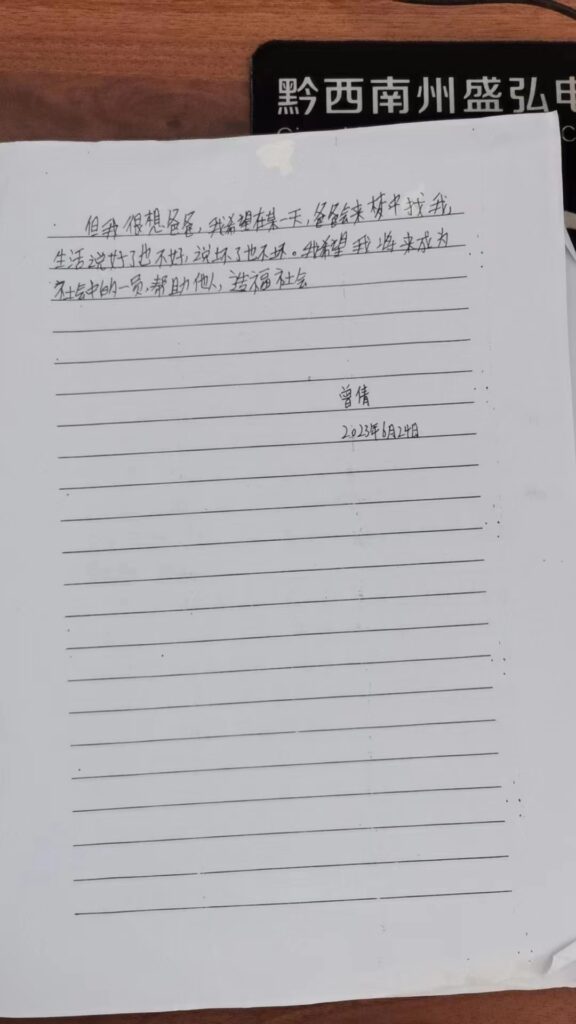 黔西南州盛弘电
但我很想爸爸,我希望在某一天,爸爸会来梦中找我,
生活说好了也不好,说坏了也不坏。我希望我将来成为
社会中的一员,帮助他人,造福社会
曾倩
2023年6月24日